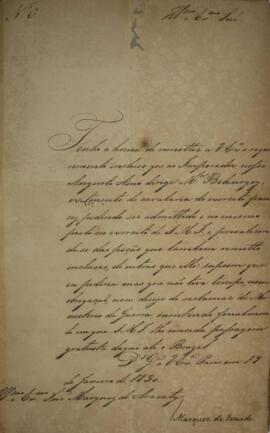 Nº 6
Illmo e Exmo Snr
Tenho a honra de remetter a V Exª o reque
rimento incluso que ao Imperador nosso
Augusto Amo dirige Mr
ex tenente de cavalaria do exercito fran
cez, pedindo ser admittido no mesmo
posto no exercito de S. M. I., e
do-se das peças que tambem remetto
inclusas, de outras que elle
mas que não teve tempo, nem
nem de reclamar do Mi
nisterio da Guerra,
te em que S. M. I. lhe conceda passagem
gratuita daqui até o Brazil
Ds Ge a V Exª Paris em 19
de Janeiro de 1830
Illmo e Exmo Snr Marquez de Aracaty
Marquez de